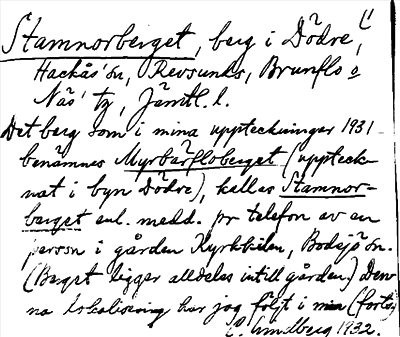 Stamnorberget, berg i Dödre,
Hackås' sn, Revsunds, Brunflo o
Näs' tg, Jämtl. l.
Det berg som i mina uppteckningar 1931
benämnes Myrbärfloberget (uppteck-
nat i byn Dödre), kallas Stamnor-
berget enl. medd. pr telefon av en
person i gården Kyrkkilen, Bodsjö sn.
(Berget ligger alldeles intill gården.) Den-
na lokalisering har jag följt i min (forts)
Lindberg 1932.